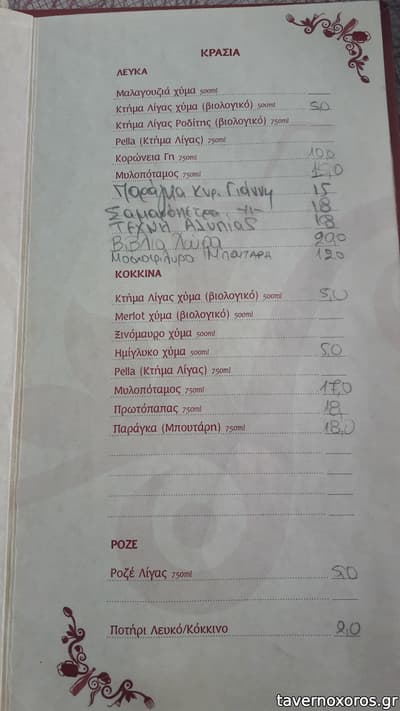 ΚΡΑΣΙΑ
ΛΕΥΚΑ
Μαλαγουζιά χύμα 500ml
Κτήμα Λίγας χύμα (βιολογικό) 500ml 5,0
Κτήμα Λίγας Ροδίτης (βιολογικό) 750ml
Pella (Κτήμα Λίγας) 750ml
Κορώνεια Γη 750ml 10,0
Μυλοπόταμος 750ml 15,0
Παράγκα Κυρ. Γιάννη 15
Σαμαρόπετρα 18
ΤΕΧΝΗ ΑΛΥΠΙΑΣ 18
Βιβλία Χώρα 20,0
Μοσχοφίλερο Μπουτάρη 12,0
ΚΟΚΚΙΝΑ
Κτήμα Λίγας χύμα (βιολογικό) 500ml 5,0
Merlot χύμα (βιολογικό) 500ml
Ξινόμαυρο χύμα 500ml
Ημίγλυκο χύμα 500ml 5,0
Pella (Κτήμα Λίγας) 750ml
Μυλοπόταμος 750ml 17,0
Πρωτόπαπας 750ml 18
Παράγκα (Μπουτάρη) 750ml 18,0
ΡΟΖΕ
Ροζέ Λίγας 750ml 5,0
Ποτήρι Λευκό/Κόκκινο 2,0
tavernoxoros.gr